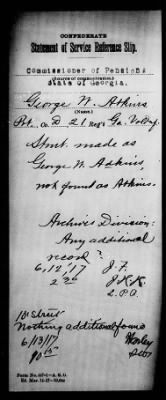 CONFEDERATE
Statement of Service Reference Slip.
Commissioner of Pensions
(Source of communication.)
State of Georgia.
George W. Atkins
(Name.)
Pvt. Co D 21 Reg't Ga. Vols.
Stmt. made as
George W. Adkins,
not found as Atkins.
Archives Division:
Any additional
record?
6/12/17 J.F.
J.K.K.
L.P.O.
10 Street
Nothing additional found
6/13/17